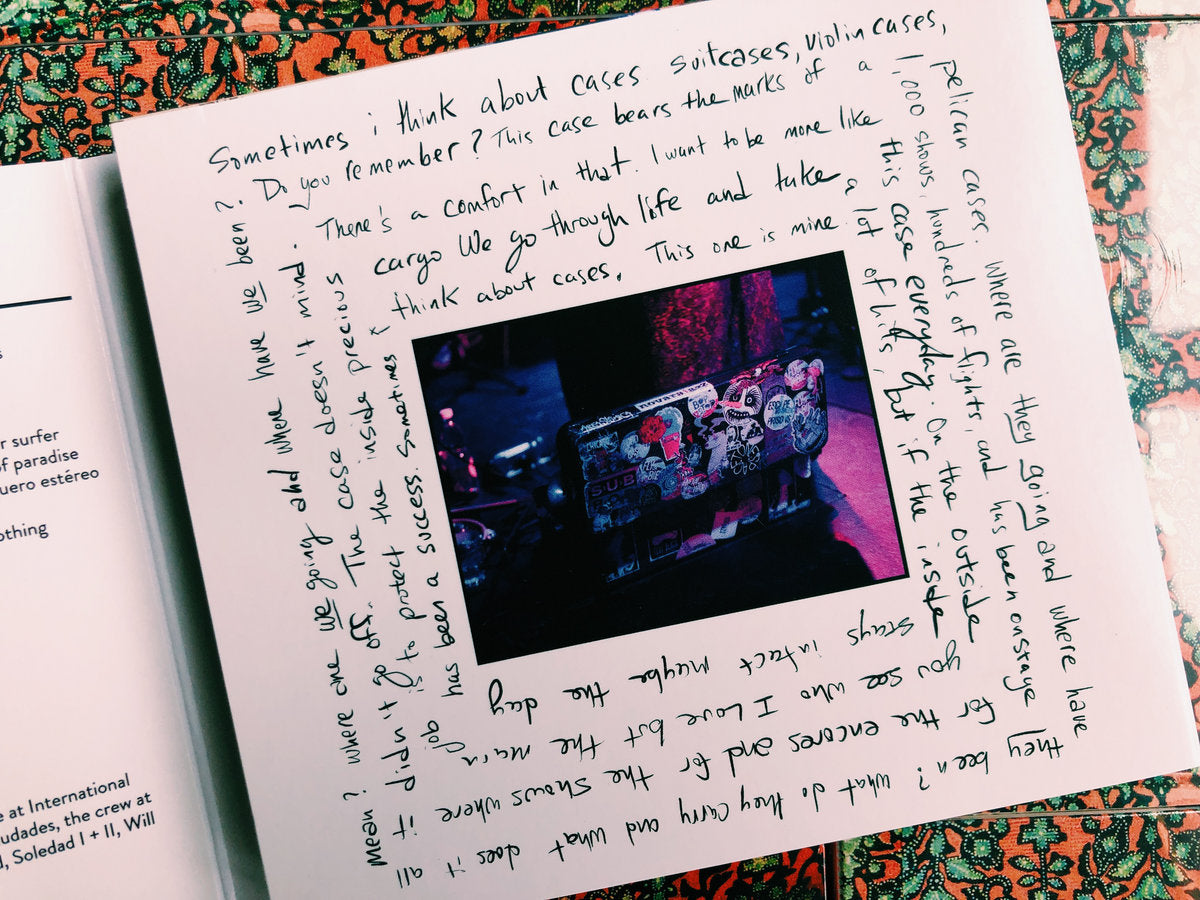 s
r surfer
of paradise
uero estéreo
othing
e at International
udades, the crew at
d, Soledad I + II, Will
Sometimes i think about cases. suitcases, violin cases,
pelican cases. Where are they going and where have
they been? What do they carry and what does it all
Mean? where are we going and where have we been?
Do you remember? This case bears the marks of a
1,000 shows, hundreds of flights, and has been onstage
for the encores and for the shows where it
didn't go off. The case doesn't mind.
There's a comfort in that. I want to be more like
this case everyday. On the outside
you see who I Love but the main
job is to protect the inside precious
cargo We go through life and take
a lot of hits, but if the inside
stays intact maybe the day
has been a success. Sometimes i
think about cases. This one is mine.
S.U.B